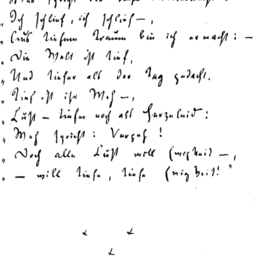 „Ich schlief, ich schlief —,
„Aus tiefem Traum bin ich erwacht: —
„Die Welt ist tief,
„Und tiefer als der Tag gedacht.
„Tief ist ihr Weh —,
„Lust — tiefer noch als Herzeleid:
„Weh spricht: Vergeh!
„Doch alle Lust will Ewigkeit —,
„— will tiefe, tiefe Ewigkeit!"